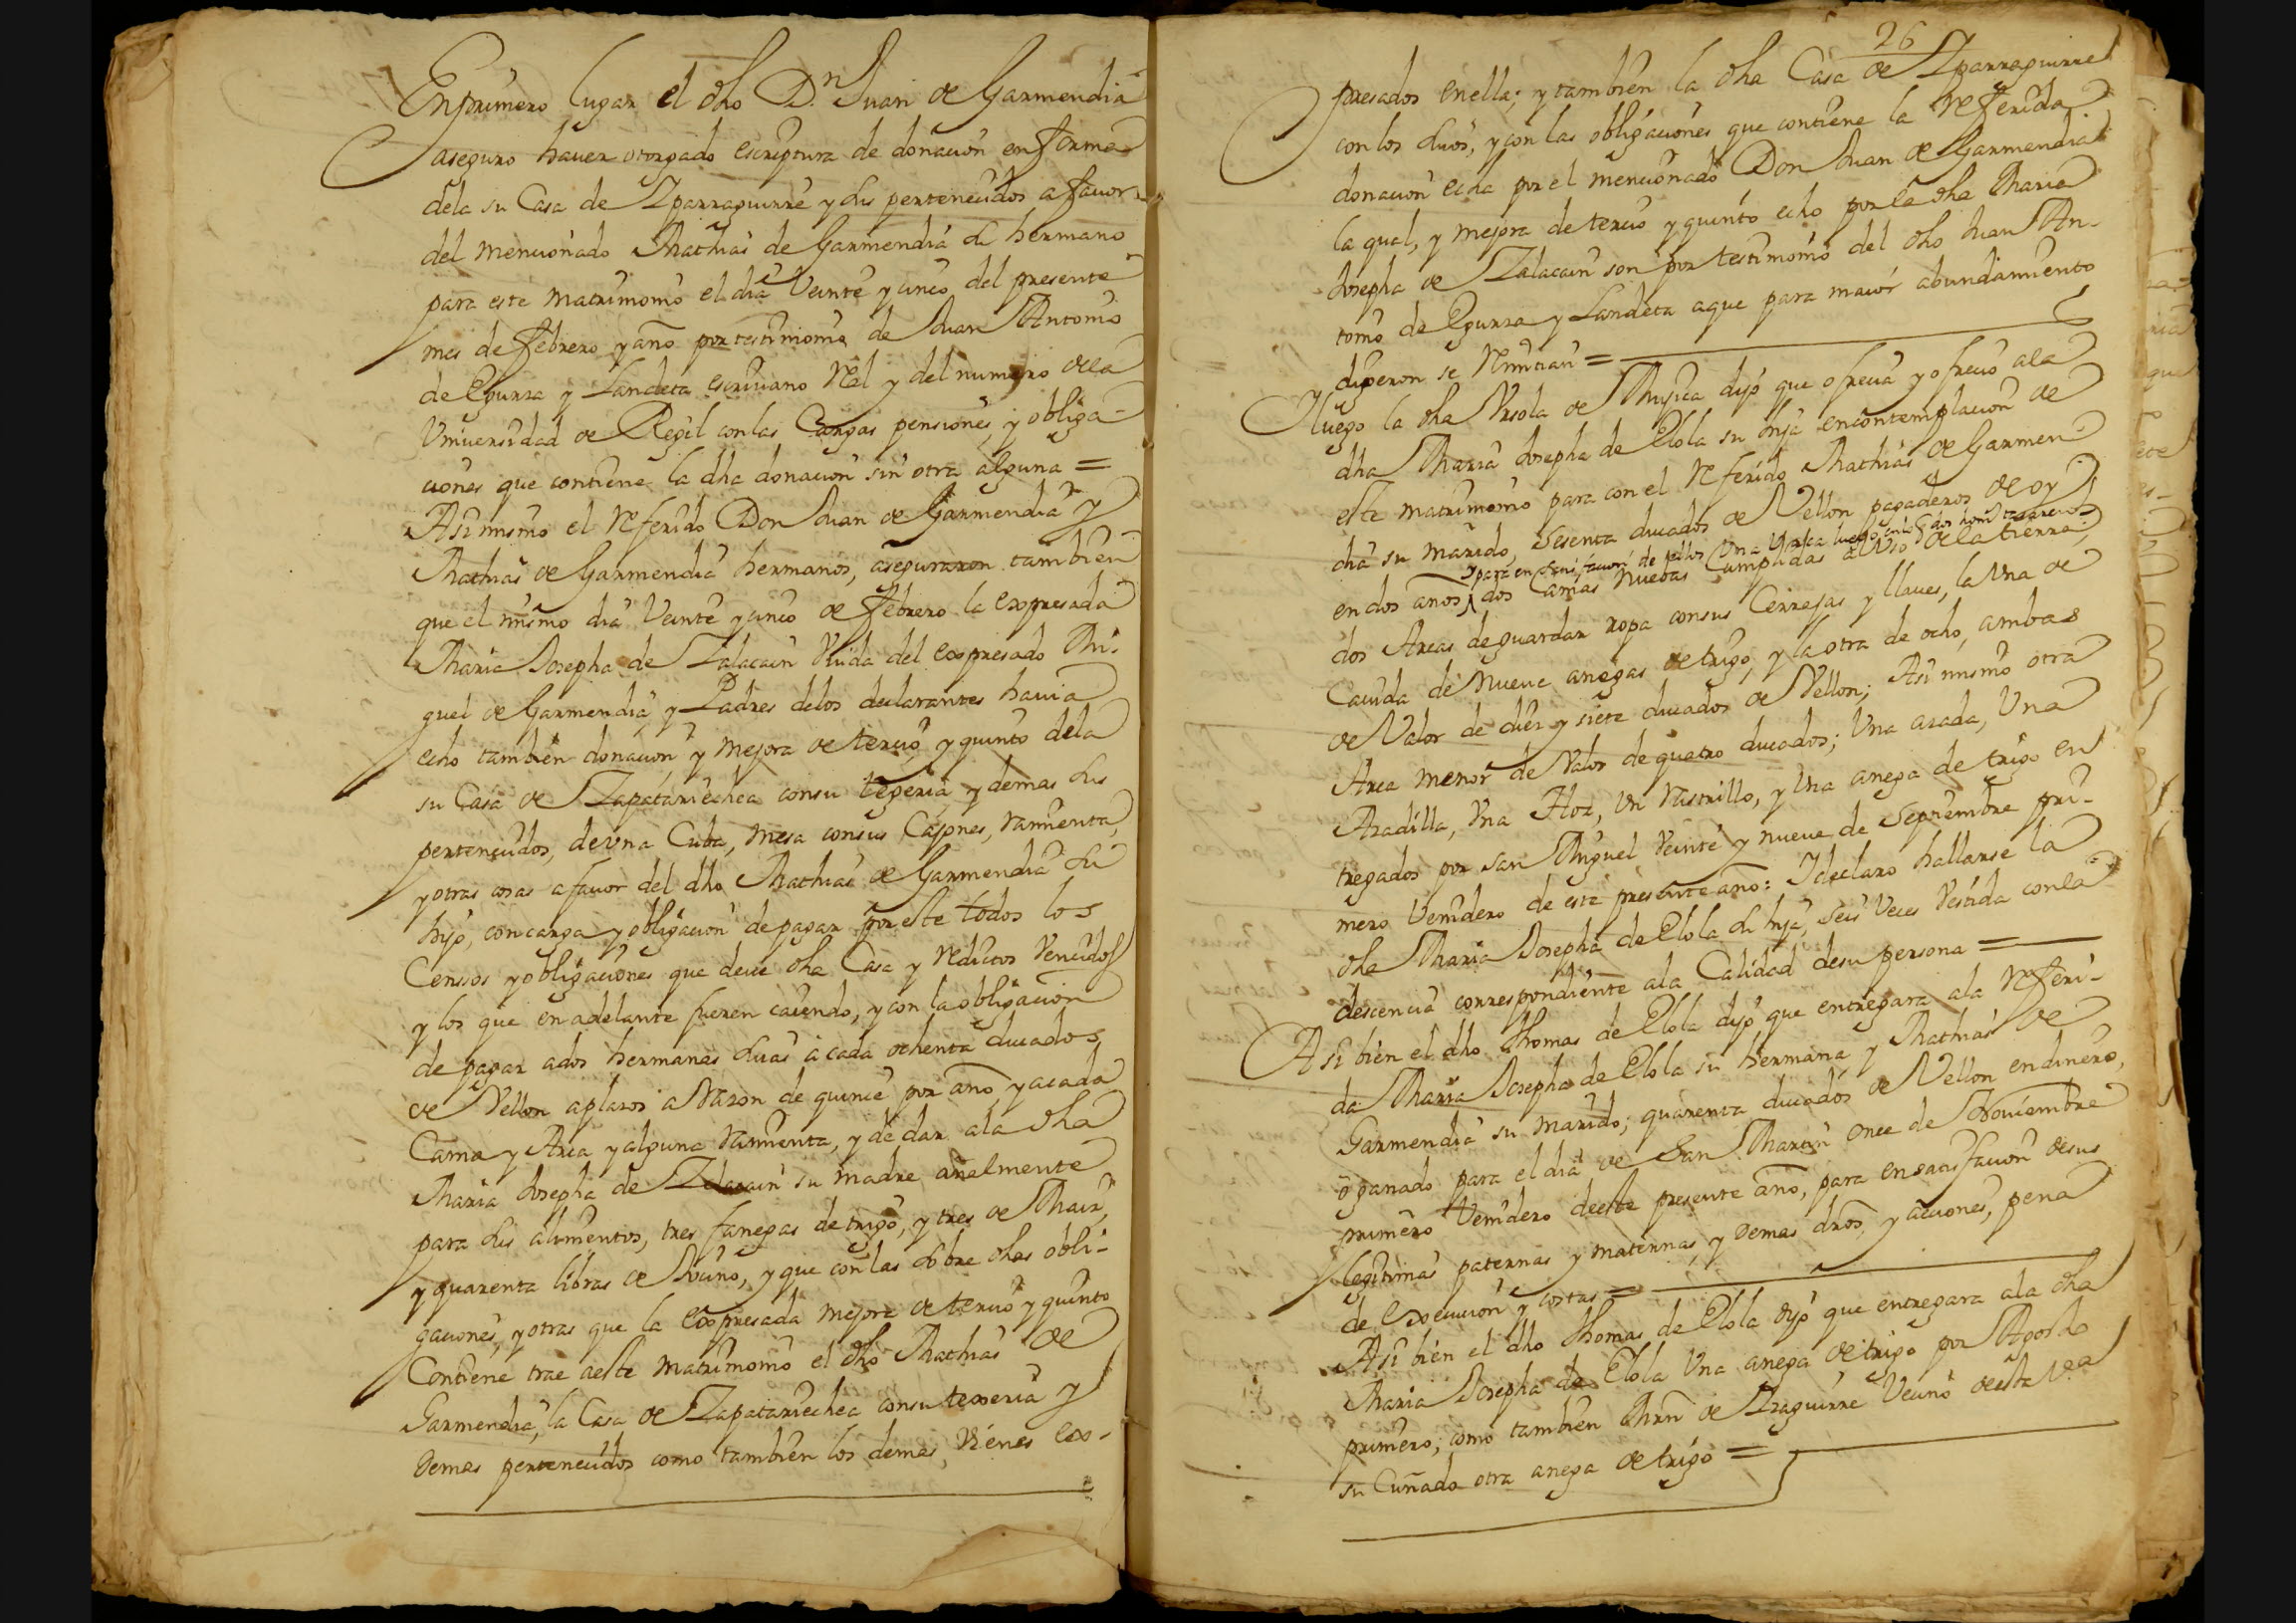 En primero lugar el dho D.n Juan de Garmendia
aseguro hauer otorgado escriptura de donacion en forma
dela su Casa de Yparraguirre y sus pertenecidos a fauor
del mencionado Mathias de Garmendia su hermano
para este matrimonio el dia Veinte y cinco del presente
mes de febrero y año por testimonio de Juan Antonio
de Egurza y Landeta escriuano Rl y del numero dela
Vniuersidad de Regil con las Cargas pensiones, y obliga-
ciones que contiene la dha donacion sin otra alguna =
Asi mismo el referido Don Juan de Garmendia y
Mathias de Garmendia hermanos, aseguraron tambien
que el mismo dia Veinte y cinco de febrero la expresada
Maria Josepha de Zalacain Viuda del expresado Mi-
guel de Garmendia, y Padres delos declarantes hauia
echo tambien donacion y mejora de tercio, y quinto dela
su Casa de Zapatariechea con su tegeria, y demas sus
pertenecidos, de vna Cuba, mesa con sus Cajones, ramienta,
y otras cosas a fauor del dho Mathias de Garmendia su
hijo, con carga y obligacion de pagar por este todos los
Censos y obligaciones que deue dha Casa y reditos Vencidos
y los que en adelante fueren caiendo, y con la obligacion
de pagar a dos hermanas suias a cada ochenta ducados
de Vellon a plazos a razon de quince por año, y a cada
Cama y Arca y alguna ramienta, y de dar ala dha
Maria Josepha de Zalacain su madre añalmente
para sus alimentos, tres fanegas de trigo, y tres de Maiz,
y quarenta libras de tocino, y que con las sobre dhas obli-
gaciones, y otras que la expresada mejora de tercio y quinto
Contiene trae a este matrimonio el dho Mathias de
Garmendia, la Casa de Zapatariechea con su texeria y
demas pertenecidos como tambien los demas, vienes ex-
26
presados en ella; y tambien la dha Casa de Yparraguirre
con los suios, y con las obligaciones que contiene la referida
donacion echa por el mencionado Don Juan de Garmendia
la qual, y mejora de tercio y quinto echo por la dha Maria
Josepha de Zalacain son por testimonio del dho Juan An-
tonio de Egurza y Landeta a que para maior abundamiento
dixeron se remitian =
I luego la dha Vrsola de Mugica dijo que ofrecia y ofrecio ala
dha Maria Josepha de Elola su hija en contemplacion de
este matrimonio para con el referido Mathias de Garmen
dia su marido, Sesenta ducados de Vellon pagaderos de oy
para en satisfacion de ellos Una Vaca luego en los dos
en dos años, dos Camas nuebas Cumplidas a vso de la tierra,
dos Arcas de guardar ropa con sus Cerrajas y llaues, la vna de
Cauida de nueue anegas de trigo, y la otra de ocho, ambas
de Valor de diez y siete ducados de Vellon; Asi mismo otra
Arca menor de Valor de quatro ducados; Vna azada, Vna
Azadilla, Vna Hoz, Vn rastrillo, y Vna anega de trigo en
tregados por San Miguel Veinte y nueue de Septiembre pri-
mero Venidero de este presente año: I declaro hallarse la
dha Maria Josepha de Elola su hija, seis Veces Vestida con la
descencia correspondiente ala Calidad de su persona =
Asi bien el dho Thomas de Elola dijo que entregara ala referi-
da Maria Josepha de Elola su hermana, y Mathias de
Garmendia su marido; quarenta ducados de Vellon en dinero,
o ganado para el dia de San Martin once de Nouiembre
primero Venidero de este presente año, para en satisfacion de sus
legitimas paternas y maternas, y demas dros, y acciones, pena
de execucion y costas =
Asi bien el dho Thomas de Elola dijo que entregara ala dha
Maria Josepha de Elola Vna anega de trigo por Agosto
primero; como tambien de Yzaguirre Vecino de esta Va
su Cuñado otra anega de trigo =